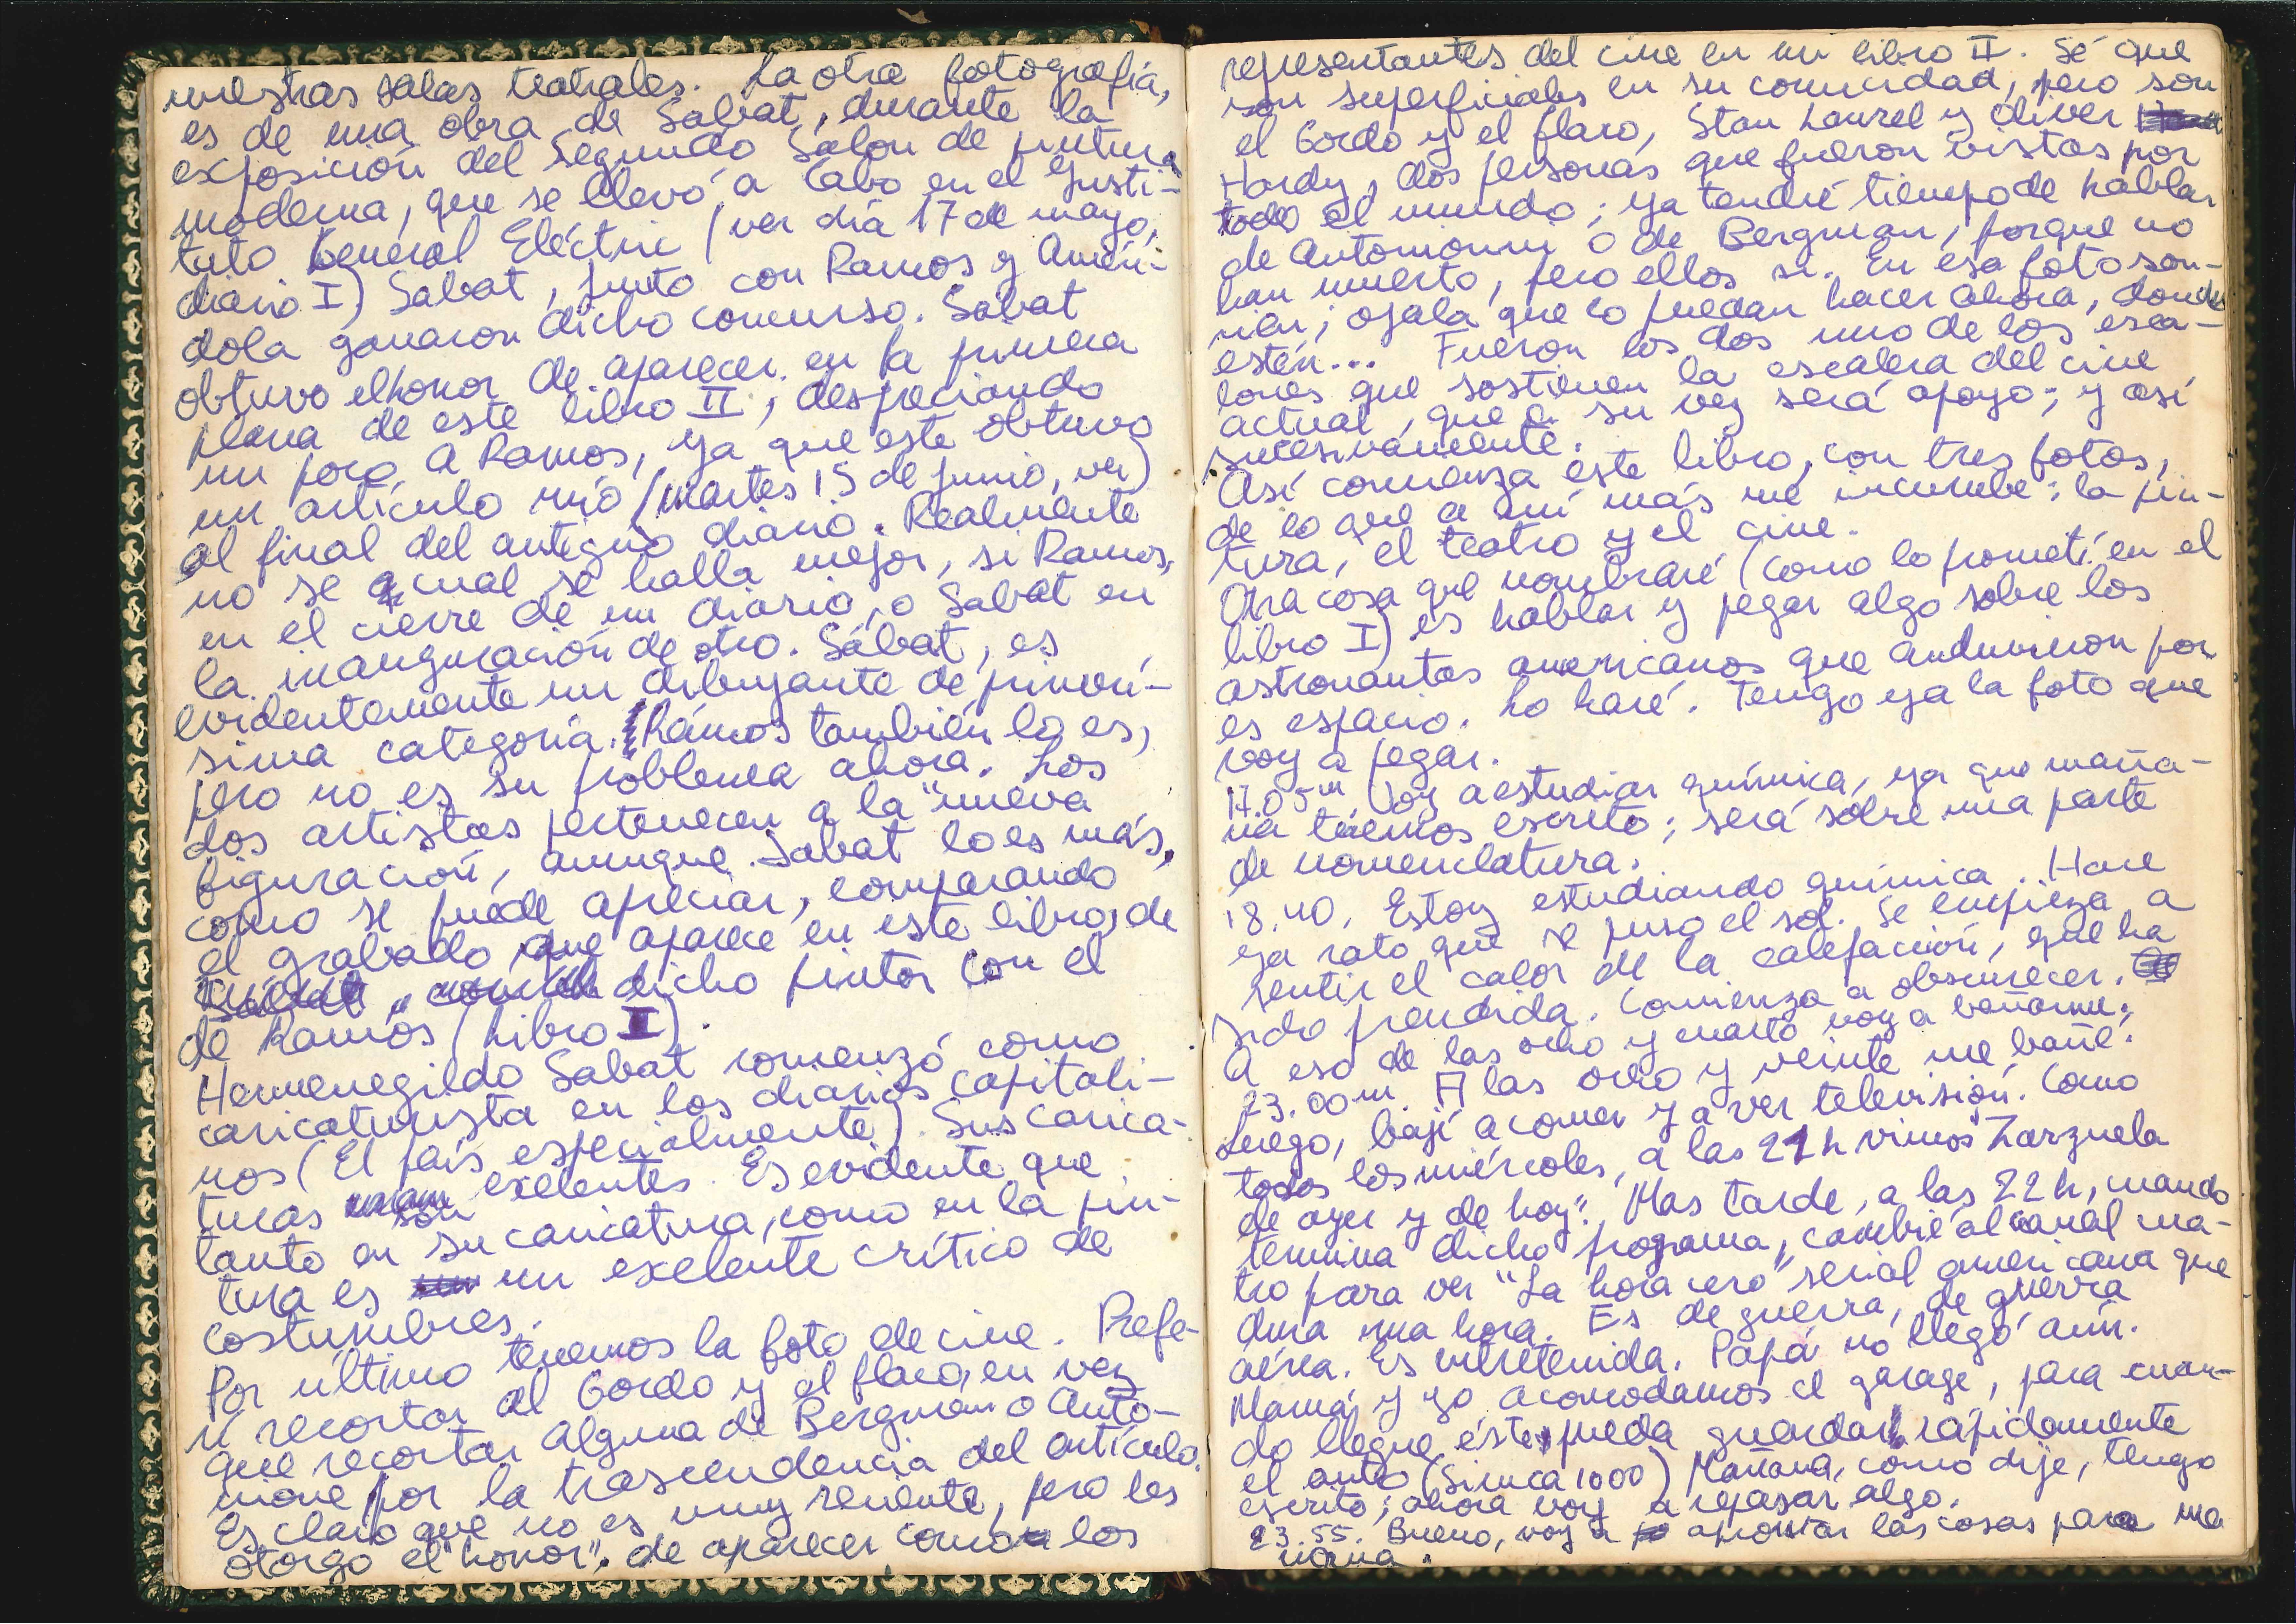 nuestras salas teatrales. La otra fotografía,
es de una obra de Sabat, durante la
exposición del Segundo Salon de pintura
moderna, que se llevó a cabo en el Insti-
tuto General Eléctric (ver día 17 de mayo,
diario I) Sabat, junto con Ramos y Améri-
dola ganaron dicho concurso. Sabat
obtuvo el honor de aparecer en la primera
plana de este libro II, despreciando
un poco a Ramos, ya que este obtuvo
un artículo mío (martes 15 de junio, ver)
al final del antiguo diario. Realmente
no se cual se halla mejor, si Ramos,
en el cierre de un diario, o Sabat en
la inauguración de otro. Sábat, es
evidentemente un dibujante de primerí-
sima categoría. Ramos también lo es,
pero no es su problema ahora. Los
dos artistas pertenecen a la "nueva
figuración, aunque Sabat lo es más,
como se puede apreciar, comparando
el grabado que aparece en este libro, de
dicho pintor con el
de Ramos (Libro I).
Hermenegildo Sabat comenzó como
caricaturista en los diarios capitali-
nos (El país especialmente). Sus carica-
turas son exelentes. Es evidente que
tanto en su caricatura, como en la pin-
tura es un exelente crítico de
costumbres.
Por último tenemos la foto de cine. Prefe-
rí recortar al Gordo y el flaco, en vez
que recortar alguna de Bergman o Anto-
nione por la trascendencia del artículo.
Es claro que no es muy reciente, pero les
otorgo el "honor", de aparecer como los
representantes del cine en un libro II. Sé que
son superficiales en su comicidad, pero son
el Gordo y el flaco, Stan Laurel y Oliver
Hardy, dos personas que fueron vistas por
todo el mundo; ya tendré tiempo de hablar
de Antonionni o de Bergman, porque no
han muerto, pero ellos sí. En esa foto son-
ríen; ojala que lo puedan hacer ahora, donde
estén... Fueron los dos uno de los esca-
lones que sostienen la escalera del cine
actual, que a su vez será apoyo; y así
sucesivamente.
Así comienza este libro, con tres fotos,
de lo que a mí más me incumbe: la pin-
tura, el teatro y el cine.
Otra cosa que nombraré (como lo prometí en el
libro I) es hablar y pegar algo sobre los
astronautas americanos que anduvieron por
es espacio. Lo haré. Tengo ya la foto que
voy a pegar.
17.05m Voy a estudiar química, ya que maña-
na tenemos escrito; será sobre una parte
de nomenclatura.
18.40. Estoy estudiando química. Hace
ya rato que se puso el sol. Se empieza a
sentir el calor de la calefacción, que ha
sido prendida. Comienza a obscurecer.
A eso de las ocho y cuarto voy a bañarme.
23.00m. A las ocho y veinte me bañé.
Luego, bajé a comer y a ver televisión. Como
todos los miércoles, a las 21h vimos "Zarzuela
de ayer y de hoy". Mas tarde, a las 22 h, cuando
termina dicho programa, cambié al canal cua-
tro para ver "La hora cero" serial americana que
dura una hora. Es de guerra, de guerra
aérea. Es entretenida. Papá no llegó aún.
Mamá y yo acomodamos el garage, para cuan-
do llegue éste pueda guardar rápidamente
el auto (Simca 1000) Mañana, como dije, tengo
escrito; ahora voy a repasar algo.
23.55. Bueno, voy a aprontar las cosas para ma
ñana.